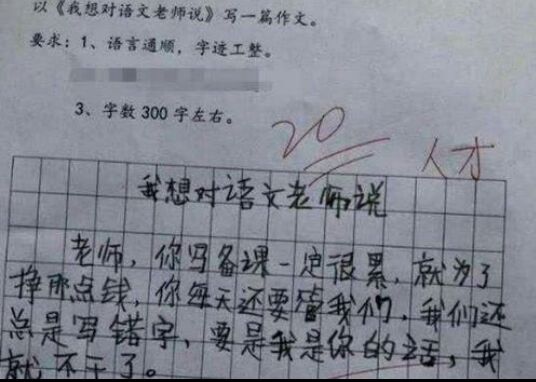 以《我想对语文老师说》写一篇作文。
要求：1、语言通顺，字迹工整。
3、字数 300 字左右。
20
人才
我想对语文老师说
老师，你写备课一定很累，就为了
挣那点钱，你每天还要管我们，我们还
总是写错字，要是我是你的话，我
就不干了。